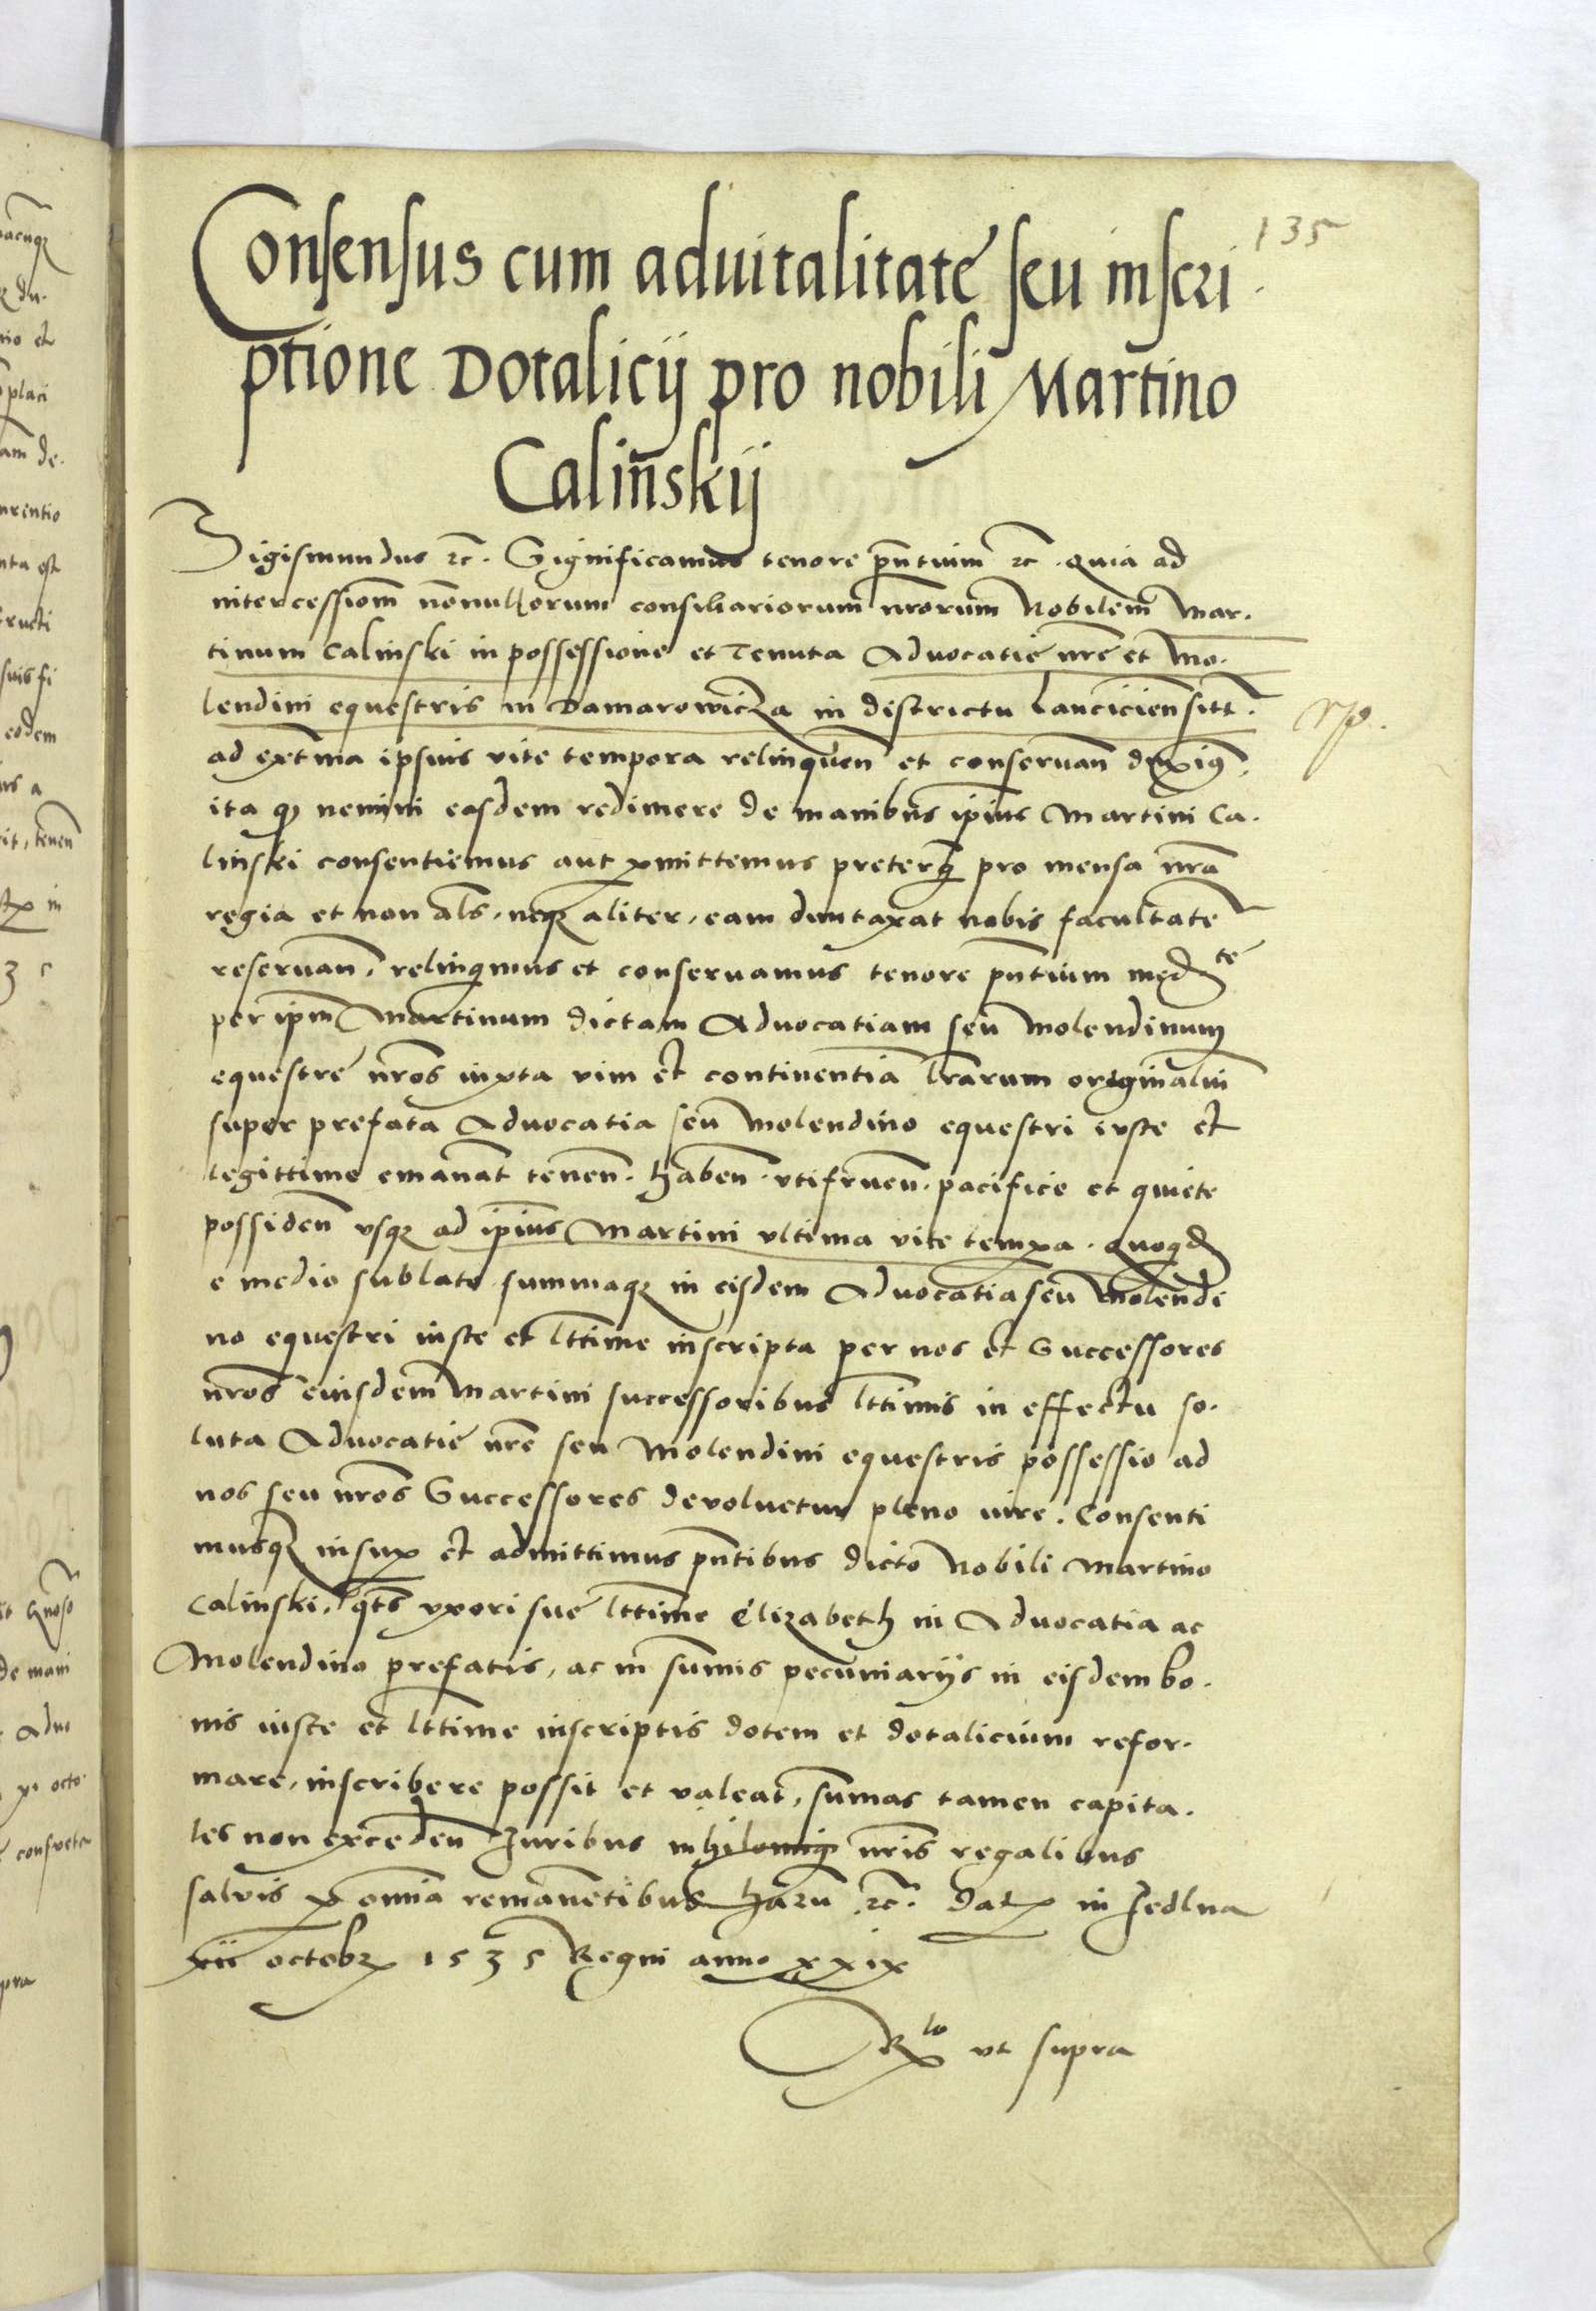 135
Consensus cum aduitalitatē seu inscri
ptione Dotalicij pro nobili Martino
Calinskij
Sigismundus zc. Significamus tenore pn̄tium zc. quia ad
intercessiom̄ nonnullorum consiliariorum nr̄orum Nobilem Mar.
tinum Calinski in possessione et Tenuta Aduocatie nr̄e et Mo.
lendini equestris in Damarowicza in districtu Lanciciensi
ad extm̄a ipsius vite tempora relinquen̄ et conseruan̄ duximꝰ
ita ꝙ nemini easdem redimere de manibus ip̄ius Martini Ca.
linski consentiemus aut ꝑmittemus preterq̄ pro mensa nr̄a
regia et non al̄s, neqꝫ aliter, eam duntaxat nobis facultatē
reseruan̄, relinquimus et conseruamus tenore pn̄tium
per ip̄m Martinum dictam Aduocatiam seu Molendinum
equestre nr̄os iuxta vim et continentiā lr̄arum originaliū
super prefata Aduocatia seu Molendino equestri iuste et
legittime emanat̄ tenen̄. haben̄. vtifruen̄. pacifice et quiete
possiden̄ vsqꝫ ad ip̄ius Martini vltima vite temꝑa. quoqꝫ
e medio sublato summaqꝫ in eisdem Aduocatia seu Molendi
no equestri iuste et lt̄time inscripta per nos et Successores
nr̄os eiusdem Martini successoribus lt̄timis in effectu so.
luta Aduocatie nr̄e seu Molendini equestris possessio ad
nos seu nr̄os Successores deuoluetur pleno iure. Consenti
musqꝫ insuꝑ et admittimus pn̄tibus dicto Nobili Martino
Calinski, qt̄s vxori sue lt̄time Elizabeth in Aduocatia ac
Molendino prefatis, ac in sum̄is pecuniarijs in eisdem bo.
nis iuste et lt̄time inscriptis dotem et dotalicium refor.
mare, inscribere possit et valeat, sum̄as tamen capita.
les non exceden̄ Iuribus nihilomiqꝫ nr̄is regalibus
saluis ꝑ om̄ia remanētibus harū zc. Dat in Jedlna
xii octobr 1535 Regni anno xxix
Rlo vt supra